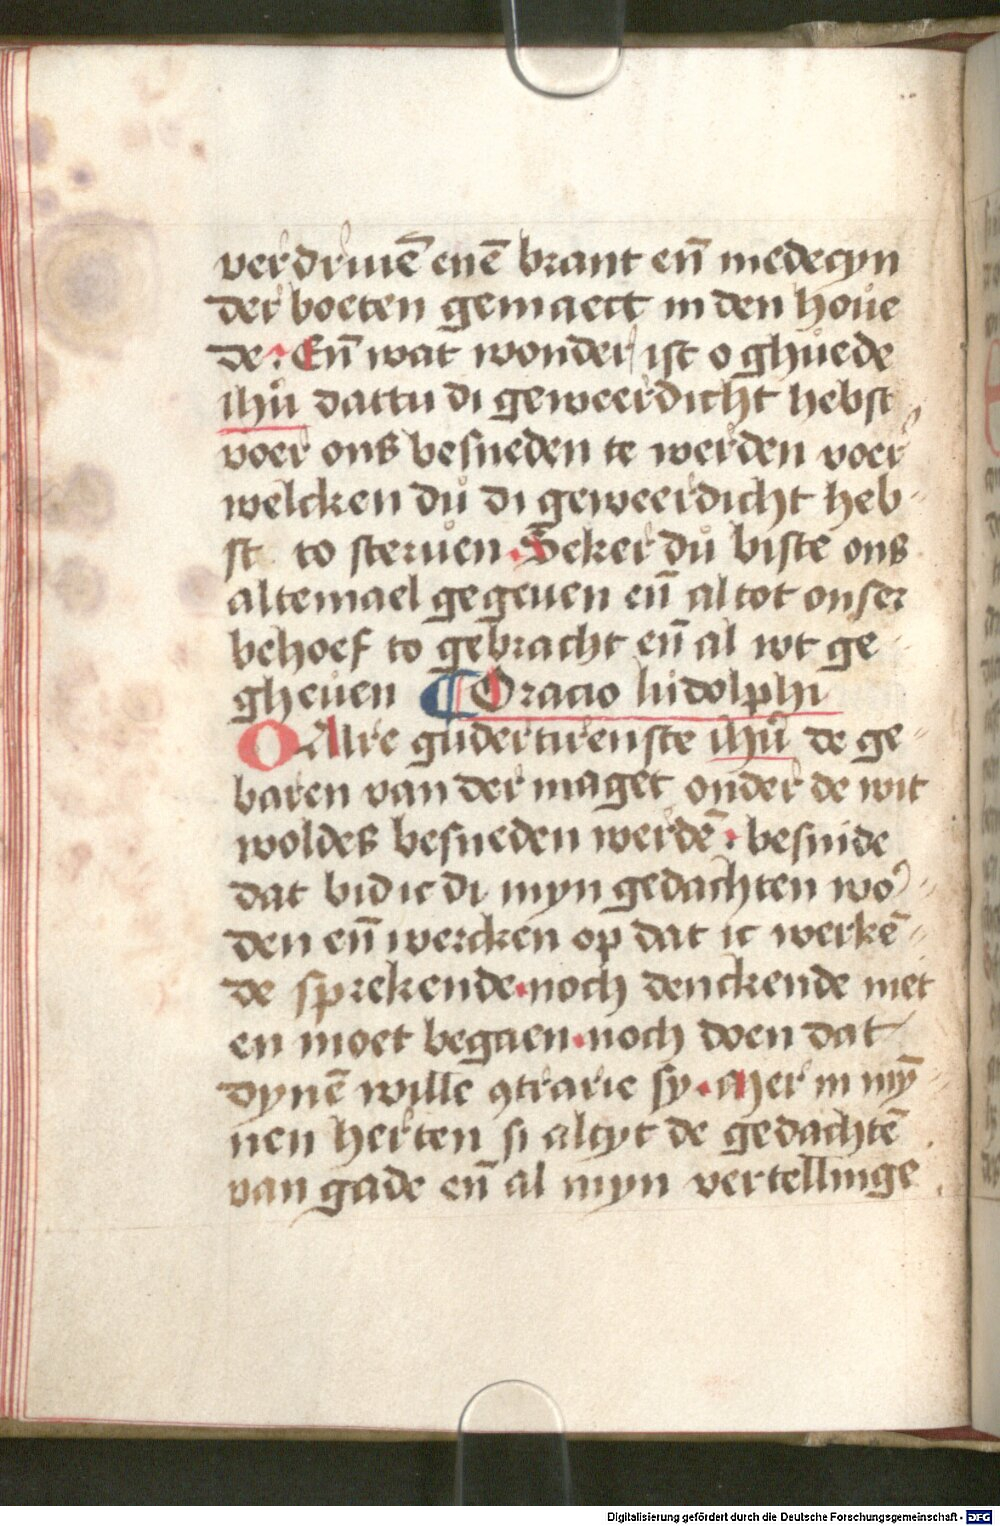 verdriuē enē brant eñ medecyn
der boeten gemaect in den houe
de · Eñ wat wonder ist o ghuede
ihū dattu di geweerdicht hebst
voer ons besneden te werden voer
welcken dů di geweerdicht heb-
st to steruen · Seker dů biste ons
altemael gegeuen eñ al tot onser
behoef to gebracht eñ al wt ge
gheuen ¶ Oracio ludolphi
O Alre gudertirenste ihū de ge-
baren van der maget onder de wit
woldes besneden werdē · besnide
dat bid ic di myn gedachten woᷣ
den eñ wercken op dat ic werkē-
de sprekende · noch denckende niet
en moet begaen · noch doen dat
dynē wille ꝯtrarie sy · Mer in mȳ-
nen herten si altyt de gedachtē
van gade eñ al myn vertellinge
Digitalisierung gefördert durch die Deutsche Forschungsgemeinschaft - DFG